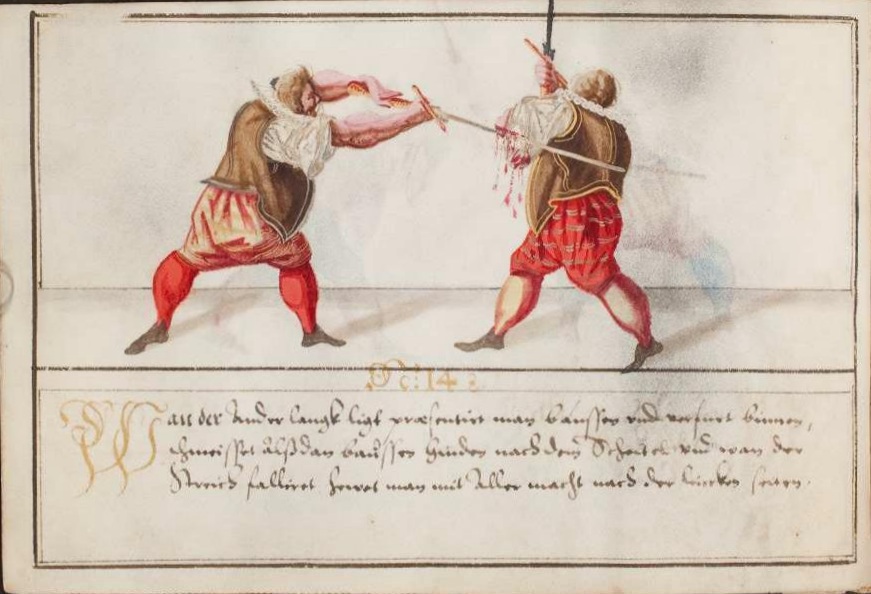 No: 14:
Wan der Ander langk ligt præsentirt man baussen vnd verfurt binnen,
schmeisset alßdan baussen hinden nach dem Scheitel vnd wan der
Streich falliret hewet man mit aller macht nach der lincken seiten.